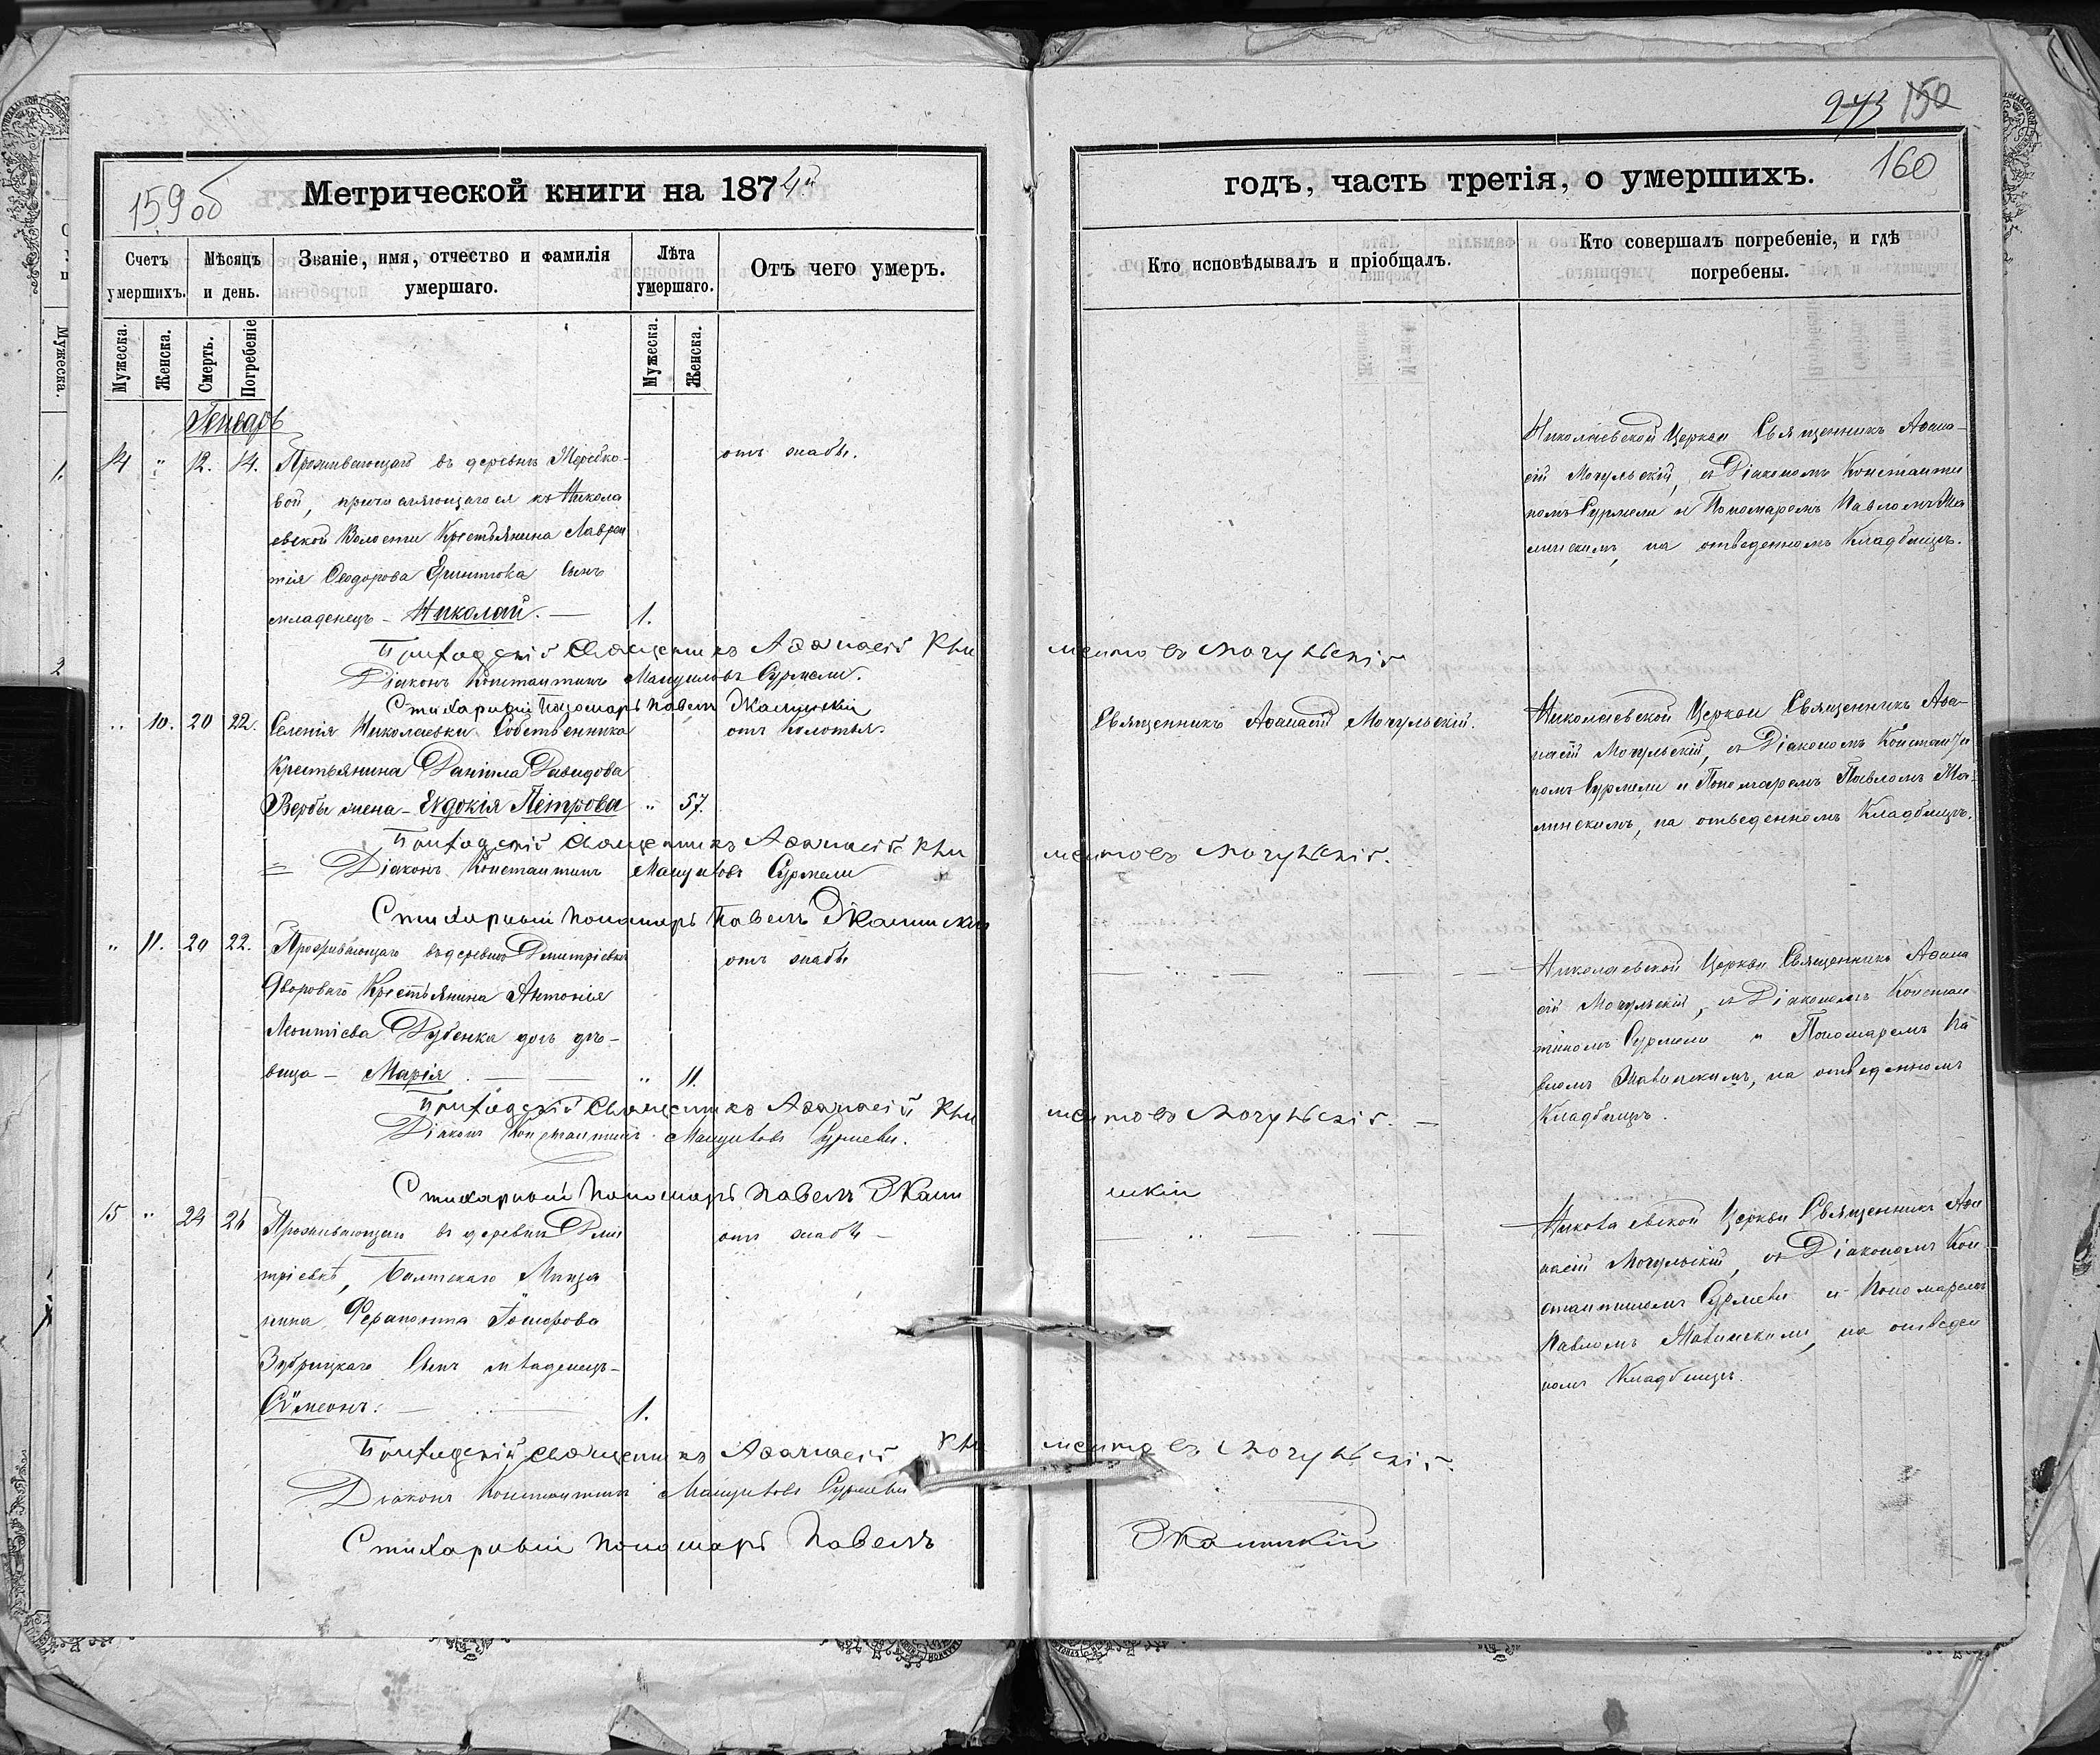 243 150
159 об
Метрической книги на 1874й
годъ, часть третія, о умершихъ.
160
Счетъ умершихъ.
Мѣсяцъ и день.
Званіе, имя, отчество и фамилія умершаго.
Лѣта умершаго.
Отъ чего умеръ.
Кто исповѣдывалъ и пріобщалъ.
Кто совершалъ погребеніе, и гдѣ погребены.
Мужеска.
Женска.
Смерть.
Погребеніе
Мужеска.
Женска.
Генварь
14 " 12. 14. Проживающаго въ деревнѣ Жеребко-
вой, причисляющагося къ Никола
евской Волости Крестьянина Лаврен
тія Ѳеодорова сынъ
младенецъ - Николай. — 1.
отъ жабы.
Николаевской Церкви Священникъ Аѳана-
сій Могульскій, съ Діакономъ Константи
номъ Сурмели и Пономаремъ Павломъ Жа
линскимъ, на отведенномъ Кладбищѣ.
Приходскій Священникъ Аѳанасій Кли
ментовъ Могульскій
Діаконъ Константинъ Мануиловъ Сурмели.
Стихарный Пономарь Павелъ Жалинскій
" 10. 20 22. Селенія Николаевки Собственника
Крестьянина Даніила Давидова
Вербы жена - Евдокія Петрова " 57.
отъ Колотья.
Священникъ Аѳанасій Могульскій.
Николаевской Церкви Священникъ Аѳа-
насій Могульскій, съ Діакономъ Константи
номъ Сурмели и Пономаремъ Павломъ Жа-
линскимъ, на отведенномъ Кладбищѣ.
Приходскій Священникъ Аѳанасій Кли
ментовъ Могульскій.
Діаконъ Константинъ Мануиловъ Сурмели
Стихарный Пономарь Павелъ Жалинскій
" 11. 20 22. Проживающаго въ деревнѣ Дмитріевкѣ
Двороваго Крестьянина Антонія
Леонтіева Дубенка дочь дѣ-
вица - Марія. — " 11.
отъ жабы
Николаевской Церкви Священникъ Аѳана
сій Могульскій, съ Діакономъ Констан
тиномъ Сурмели и Пономаремъ Па
вломъ Жалинскимъ, на отведенномъ
Кладбищѣ.
Приходскій Священникъ Аѳанасій Кли
ментовъ Могульскій. —
Діаконъ Константинъ Мануиловъ Сурмели.
Стихарный Пономарь Павелъ Жали
нскій
15 " 24 26 Проживающаго въ деревнѣ Дми
тріевкѣ, Балтскаго Мѣща
нина Ферапонта
Зубрицкаго Сынъ младенецъ-
Сѵмеонъ. — 1.
отъ жабы -
Николаевской Церкви Священникъ Аѳа
насій Могульскій, съ Діакономъ Кон
стантиномъ Сурмели и Пономаремъ
Павломъ Жалинскимъ, на отведен
номъ Кладбищѣ.
Приходскій Священникъ Аѳанасій Кли
ментовъ Могульскій.
Діаконъ Константинъ Мануиловъ Сурмели
Стихарный Пономарь Павелъ
Жалинскій